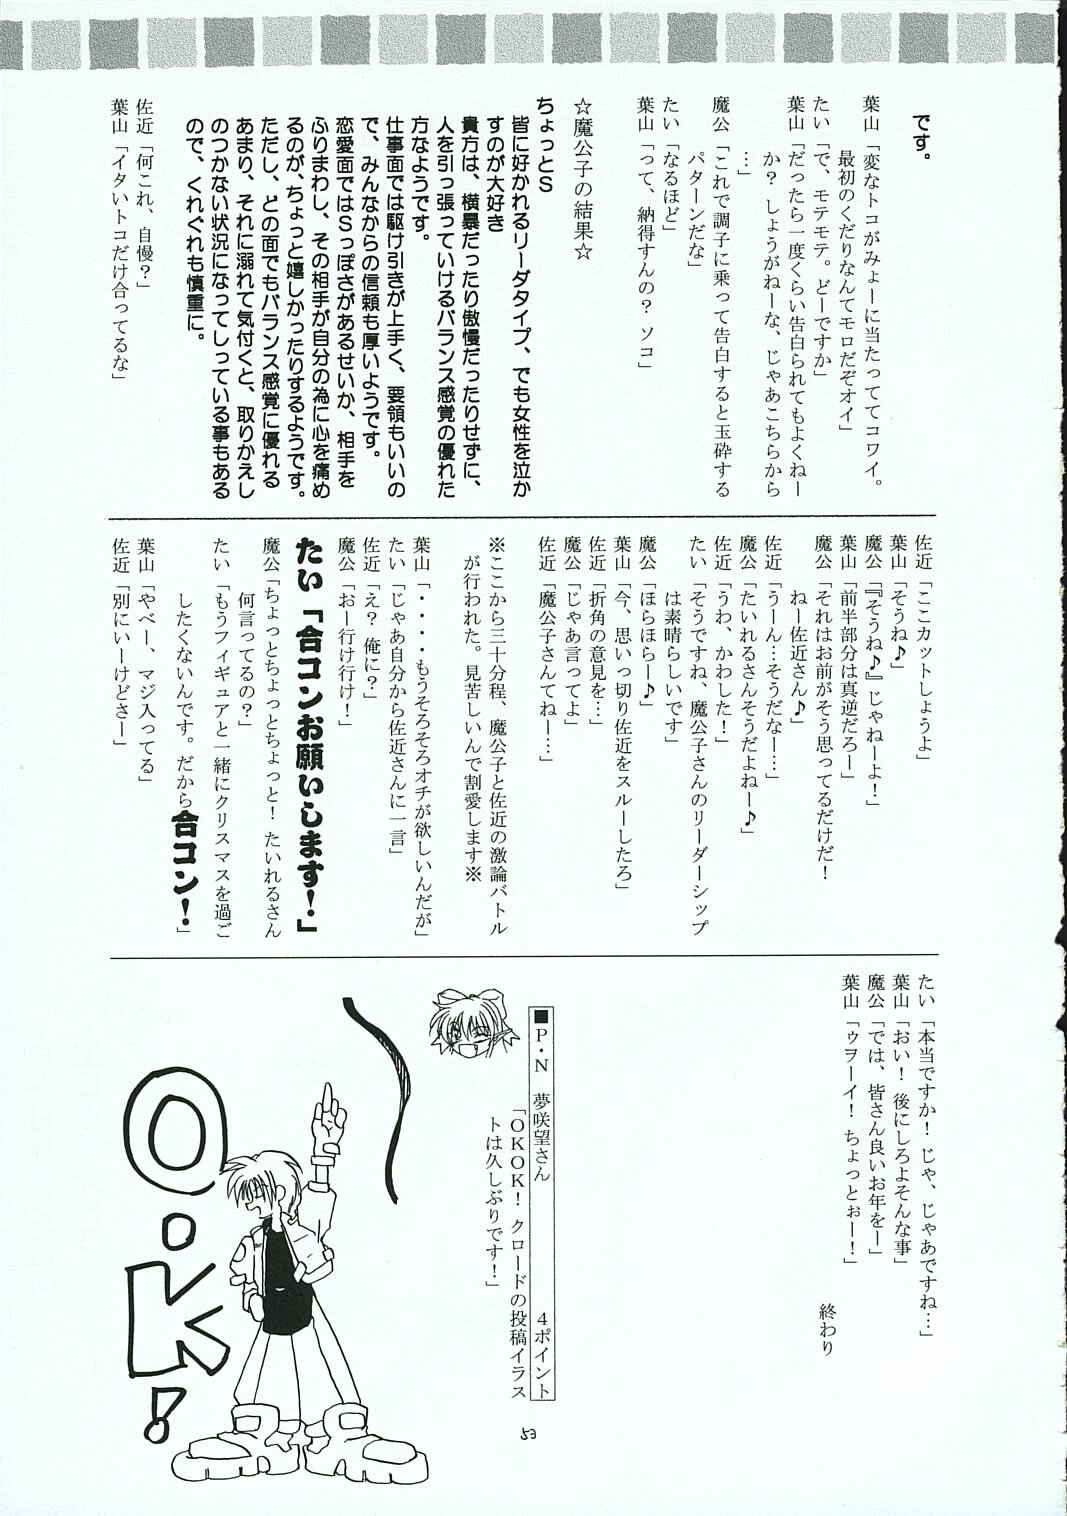 です。
葉山「変なトコがみょーに当たっててコワイ。
最初のくだりなんてモロだぞオイ」
たい「で、モテモテ。どーですか」
葉山「だったら一度くらい告白られてもよくねー
か？しょうがねーな、じゃあこちらから
…」
魔公「これで調子に乗って告白すると玉砕する
パターンだな」
たい「なるほど」
葉山「って、納得すんの？ソコ」
☆魔公子の結果☆
ちょっとＳ
皆に好かれるリーダタイプ、でも女性を泣か
すのが大好き
貴方は、横暴だったり傲慢だったりせずに、
人を引っ張っていけるバランス感覚の優れた
方なようです。
仕事面では駆け引きが上手く、要領もいいの
で、みんなからの信頼も厚いようです。
恋愛面ではＳっぽさがあるせいか、相手を
ふりまわし、その相手が自分の為に心を痛め
るのが、ちょっと嬉しかったりするようです。
ただし、どの面でもバランス感覚に優れる
あまり、それに溺れて気付くと、取りかえし
のつかない状況になってしっている事もある
ので、くれぐれも慎重に。
佐近「何これ、自慢？」
葉山「イタいトコだけ合ってるな」
佐近「ここカットしょうよ」
葉山「そうね♪」
魔公『『そうね♪』じゃねーよ！」
葉山「前半部分は真逆だろー」
魔公「それはお前がそう思ってるだけだ！
ねー佐近さん♪」
佐近「うーん…そうだなー…」
魔公「たいれるさんそうだよねー♪」
佐近「うわ、かわした！」
たい「そうですね、魔公子さんのリーダーシップ
は素晴らしいです」
魔公「ほらほらー♪」
葉山「今、思いっ切り佐近をスルーしたろ」
佐近「折角の意見を…」
魔公「じゃあ言ってよ」
佐近「魔公子さんてねー…」
※ここから三十分程、魔公子と佐近の激論バトル
が行われた。見苦しいんで割愛します※
葉山「・・・・もうそろそろオチが欲しいんだが」
たい「じゃあ自分から佐近さんに一言」
佐近「え？俺に？」
魔公「おー行け行け！」
たい「合コンお願いします！」
魔公「ちょっとちょっとちょっと！たいれるさん
何言ってるの？」
たい「もうフィギュアと一緒にクリスマスを過ご
したくないんです。だから合コン！」
葉山「やべー、マジ入ってる」
佐近「別にいーけどさー」
たい「本当ですか！じゃ、じゃあですね…」
葉山「おい！後にしろよそんな事」
魔公「では、皆さん良いお年をー」
葉山「ゥヲーイ！ちょっとぉー！」
終わり
■Ｐ・Ｎ　夢咲望さん　４ポイント
「ＯＫＯＫ！クロードの投稿イラス
トは久しぶりです！」
O・K!
53